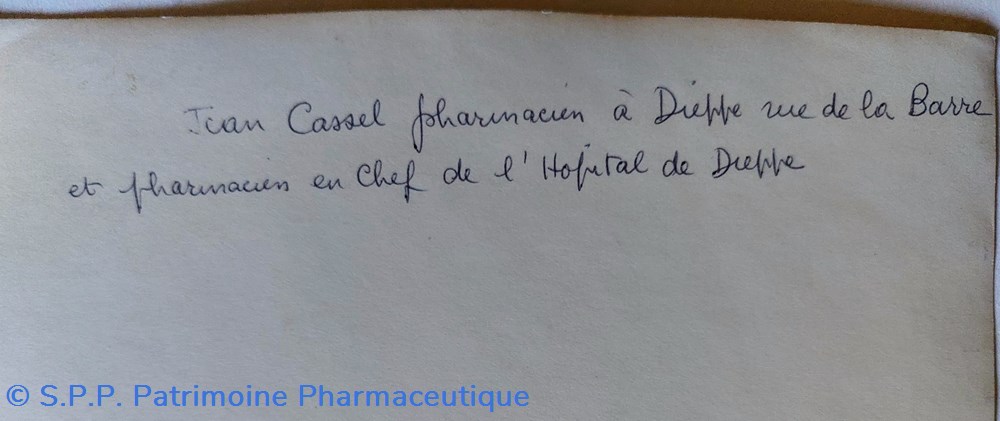 Jean Cassel pharmacien à Dieppe rue de la Barre
et pharmacien en Chef de l'Hopital de Dieppe
© S.P.P. Patrimoine Pharmaceutique